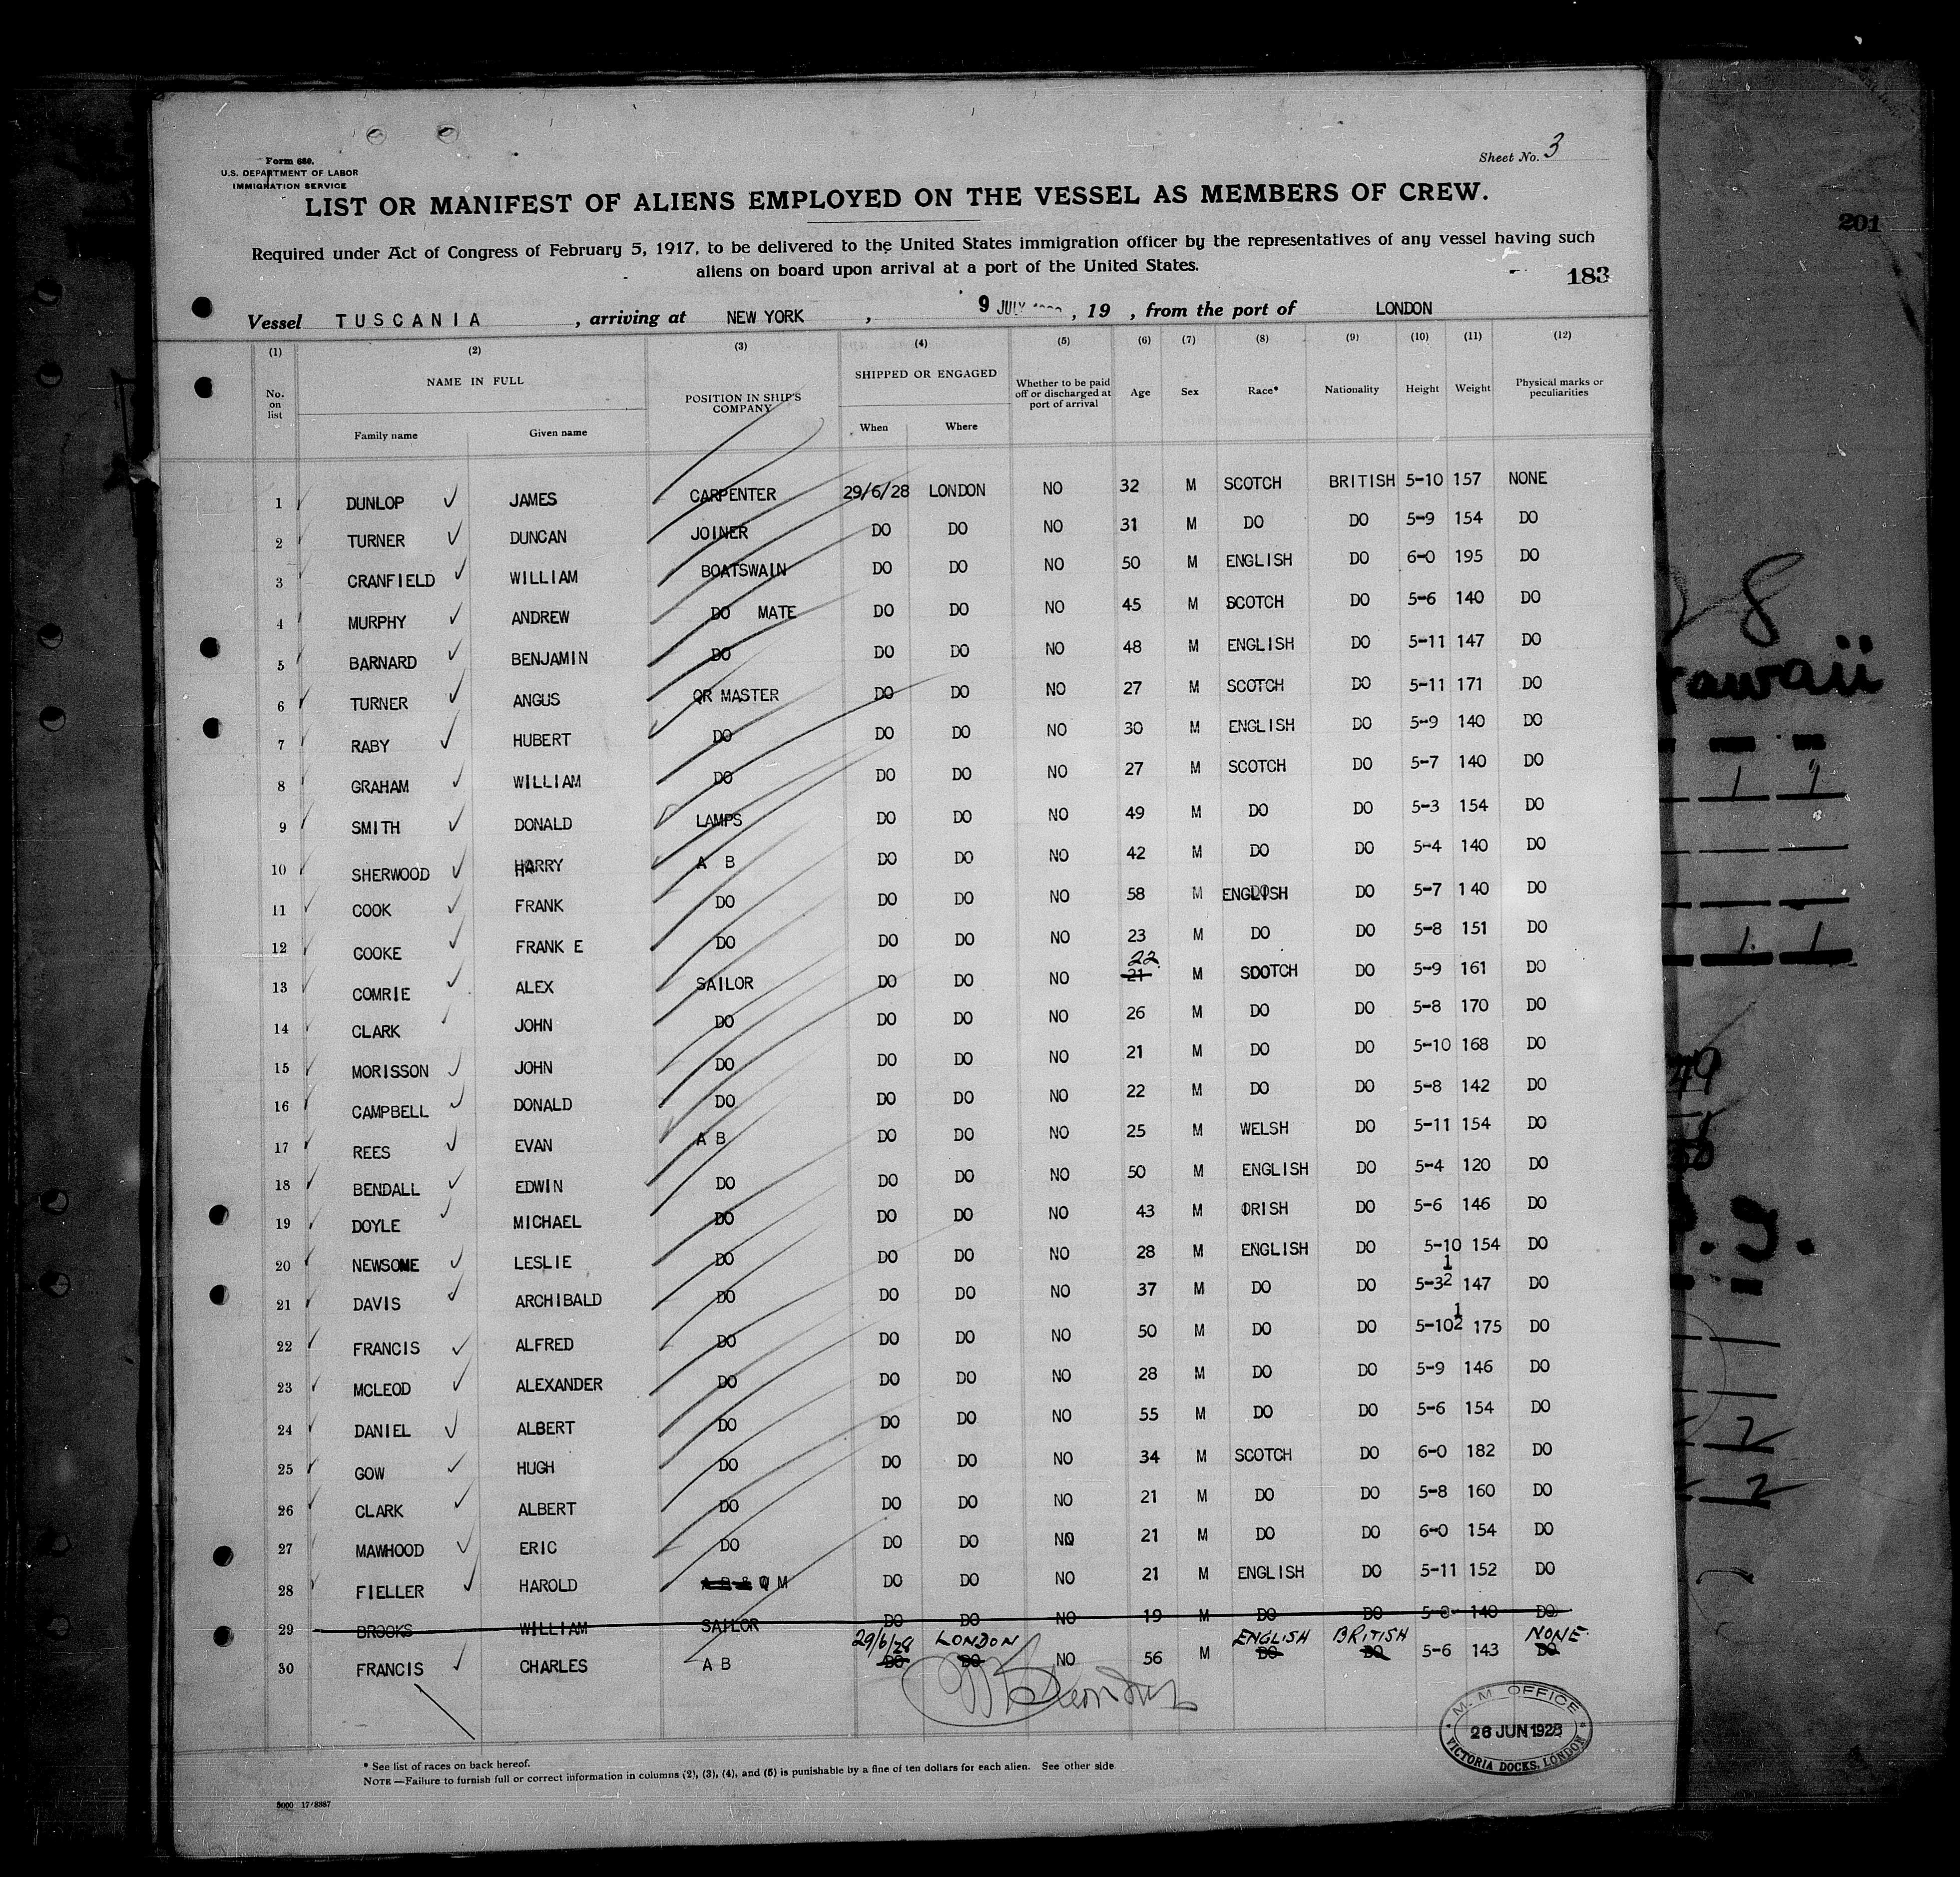 Form 680.
U.S. DEPARTMENT OF LABOR
IMMIGRATION SERVICE
Sheet No. 3
LIST OR MANIFEST OF ALIENS EMPLOYED ON THE VESSEL AS MEMBERS OF CREW.
201
Required under Act of Congress of February 5, 1917, to be delivered to the United States immigration officer by the representatives of any vessel having such
aliens on board upon arrival at a port of the United States.
183
Vessel TUSCANIA , arriving at NEW YORK , 9 JULY , 19 , from the port of LONDON
(1) (2) (3) (4) (5) (6) (7) (8) (9) (10) (11) (12)
No. on list NAME IN FULL POSITION IN SHIP'S COMPANY SHIPPED OR ENGAGED Whether to be paid off or discharged at port of arrival Age Sex Race* Nationality Height Weight Physical marks or peculiarities
Family name Given name When Where
1 DUNLOP JAMES CARPENTER 29/6/28 LONDON NO 32 M SCOTCH BRITISH 5-10 157 NONE
2 TURNER DUNCAN JOINER DO DO NO 31 M DO DO 5-9 154 DO
3 CRANFIELD WILLIAM BOATSWAIN DO DO NO 50 M ENGLISH DO 6-0 195 DO
4 MURPHY ANDREW DO MATE DO DO NO 45 M SCOTCH DO 5-6 140 DO
5 BARNARD BENJAMIN DO DO DO NO 48 M ENGLISH DO 5-11 147 DO
6 TURNER ANGUS QR MASTER DO DO NO 27 M SCOTCH DO 5-11 171 DO
7 RABY HUBERT DO DO DO NO 30 M ENGLISH DO 5-9 140 DO
8 GRAHAM WILLIAM DO DO DO NO 27 M SCOTCH DO 5-7 140 DO
9 SMITH DONALD LAMPS DO DO NO 49 M DO DO 5-3 154 DO
10 SHERWOOD HARRY A B DO DO NO 42 M DO DO 5-4 140 DO
11 COOK FRANK DO DO DO NO 58 M ENGLISH DO 5-7 140 DO
12 COOKE FRANK E DO DO DO NO 23 M DO DO 5-8 151 DO
22
13 COMRIE ALEX SAILOR DO DO NO 21 M SCOTCH DO 5-9 161 DO
14 CLARK JOHN DO DO DO NO 26 M DO DO 5-8 170 DO
15 MORISSON JOHN DO DO DO NO 21 M DO DO 5-10 168 DO
16 CAMPBELL DONALD DO DO DO NO 22 M DO DO 5-8 142 DO
17 REES EVAN A B DO DO NO 25 M WELSH DO 5-11 154 DO
18 BENDALL EDWIN DO DO DO NO 50 M ENGLISH DO 5-4 120 DO
19 DOYLE MICHAEL DO DO DO NO 43 M IRISH DO 5-6 146 DO
20 NEWSOME LESLIE DO DO DO NO 28 M ENGLISH DO 5-10 154 DO
21 DAVIS ARCHIBALD DO DO DO NO 37 M DO DO 5-3½ 147 DO
22 FRANCIS ALFRED DO DO DO NO 50 M DO DO 5-10½ 175 DO
23 MCLEOD ALEXANDER DO DO DO NO 28 M DO DO 5-9 146 DO
24 DANIEL ALBERT DO DO DO NO 55 M DO DO 5-6 154 DO
25 GOW HUGH DO DO DO NO 34 M SCOTCH DO 6-0 182 DO
26 CLARK ALBERT DO DO DO NO 21 M DO DO 5-8 160 DO
27 MAWHOOD ERIC DO DO DO NO 21 M DO DO 6-0 154 DO
28 FIELLER HAROLD A B & Q M DO DO NO 21 M ENGLISH DO 5-11 152 DO
29 BROOKS WILLIAM SAILOR DO DO NO 19 M DO DO 5-8 140 DO
29/6/28 LONDON ENGLISH BRITISH NONE
30 FRANCIS CHARLES A B DO DO NO 56 M DO DO 5-6 143 DO
M. M. OFFICE
26 JUN 1928
VICTORIA DOCKS, LONDON
* See list of races on back hereof.
NOTE.—Failure to furnish full or correct information in columns (2), (3), (4), and (5) is punishable by a fine of ten dollars for each alien. See other side
5000 17/8387